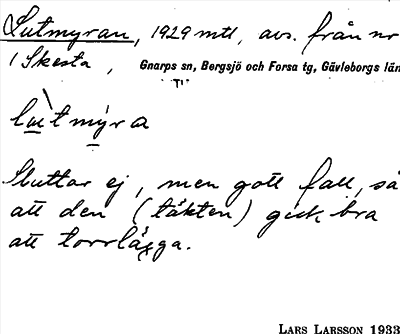 Lutmyran, 1929 mtl, avs. från nr
1 Skesta, Gnarps sn, Bergsjö och Forsa tg, Gävleborgs län
lutmyra
Sluttar ej, men gott fall, så
att den (täkten) gick bra
att torrlägga.
LARS LARSSON 1933